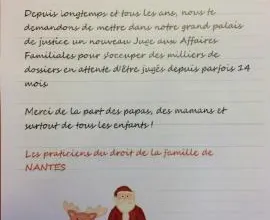 Depuis longtemps et tous les ans, nous te
demandons de mettre dans notre grand palais
de justice un nouveau Juge aux Affaires
Familiales pour s'occuper des milliers de
dossiers en attente d'être jugés depuis parfois 14
mois
Merci de la part des papas, des mamans et
surtout de tous les enfants !
Les praticiens du droit de la famille de
NANTES